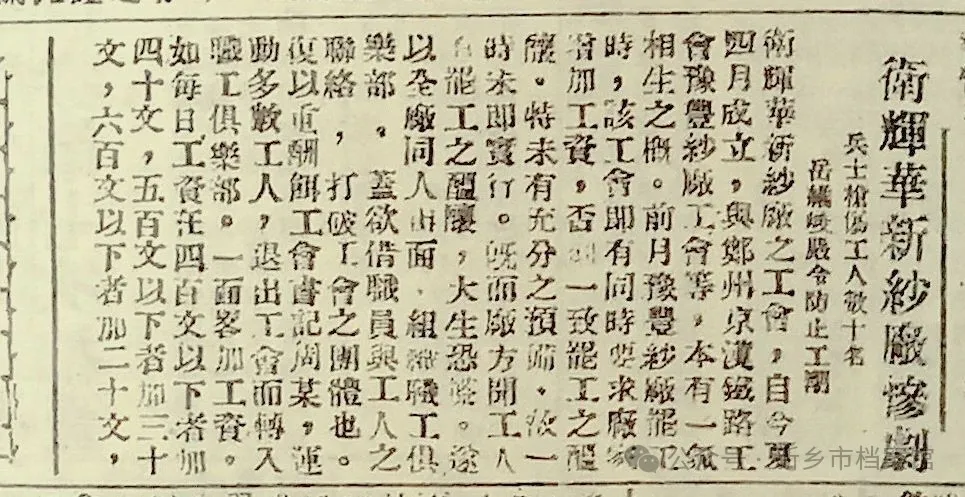 衛輝華新紗廠慘劇
兵士槍傷工人數十名
岳維峻嚴令防止工潮
衛輝華新紗廠之工會，自今夏
四月成立，與鄭州京漢鐵路工
會豫豐紗廠工會等，本有一氣
相生之概。前月豫豐紗廠罷工
時，該工會即有同時要求廠家
增加工資，否則一致罷工之醞
釀。特未有充分之預備。故一
時未即實行。旣而廠方聞工人
有罷工之醞釀，大生恐慌。遂
以全廠同人出面，組織職工俱
樂部。蓋欲借職員與工人之
聯絡，打破工會之團體也。
復以重酬餌工會書記周某，運
動多數工人，退出工會而轉入
職工俱樂部。一面畧加工資。
如每日工資在四百文以下者加
四十文，五百文以下者加三十
文，六百文以下者加二十文，
公众号·新乡市档案馆